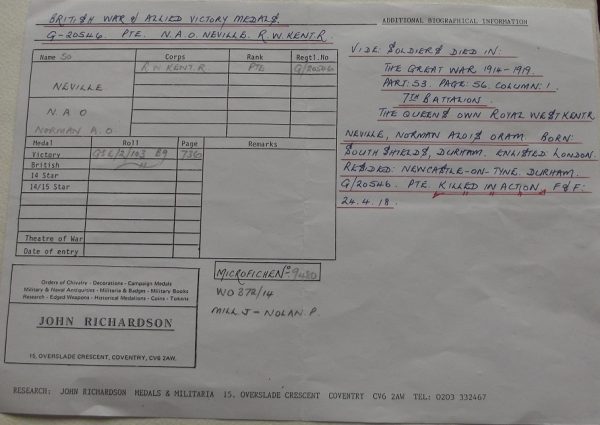 BRITISH WAR & ALLIED VICTORY MEDALS.
G-20546. PTE. N.A.O. NEVILLE. R.W.KENT.R.
ADDITIONAL BIOGRAPHICAL INFORMATION
Name 50 Corps Rank Regtl.No
R.W.KENT.R. PTE G/20546
NEVILLE.
N A O
NORMAN A.O.
Medal Roll Page Remarks
Victory 736
British
14 Star
14/15 Star
Theatre of War
Date of entry
VIDE: SOLDIERS DIED IN:
THE GREAT WAR 1914-1919.
PART: 53. PAGE: 56. COLUMN: 1.
7TH BATTALION.
THE QUEENS OWN ROYAL WEST KENT R
NEVILLE, NORMAN ALOIS ORAM. BORN:
SOUTH SHIELDS, DURHAM. ENLISTED: LONDON.
RESIDED: NEWCASTLE-ON-TYNE. DURHAM.
G/20546. PTE. KILLED IN ACTION, F&F:
24.4.18.
Orders of Chivalry - Decorations - Campaign Medals
Military & Naval Antiquities - Militaria & Badges - Military Books
Research - Edged Weapons - Historical Medallions - Coins - Tokens
JOHN RICHARDSON
15, OVERSLADE CRESCENT, COVENTRY, CV6 2AW.
MICROFICHE No. 9480
WO 372/14
MILL J - NOLAN. P.
RESEARCH: JOHN RICHARDSON MEDALS & MILITARIA 15, OVERSLADE CRESCENT COVENTRY CV6 2AW TEL: 0203 332467